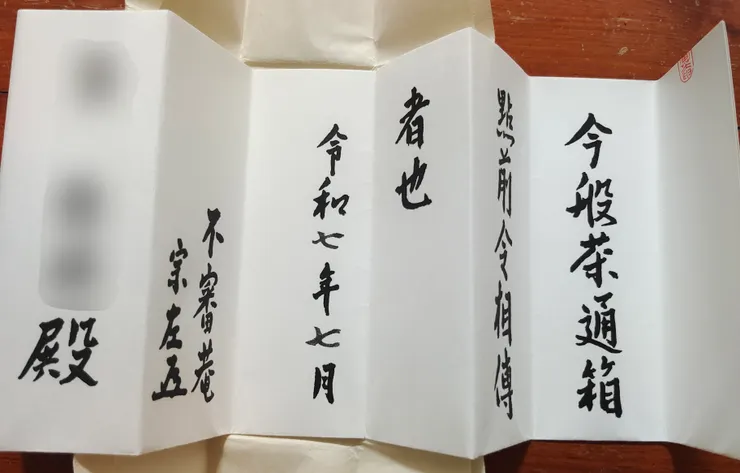 今般茶通箱
點前令相傳
者也
令和七年七月
不審菴
宗左
殿